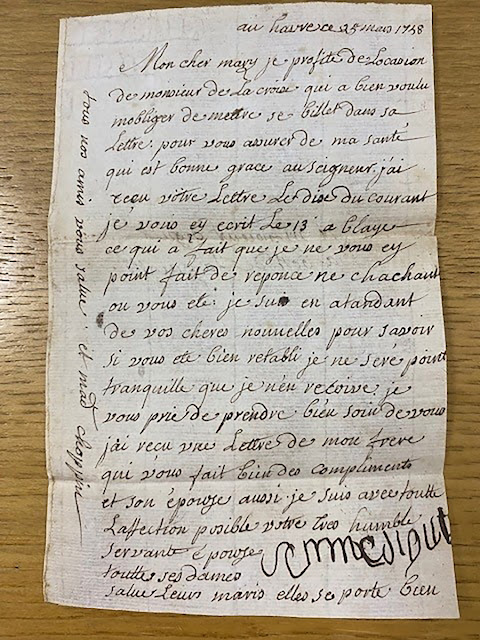 au havre ce 25 mars 1758
Mon cher mary je profite de Locasion
de monsieur de La croix qui a bien voulu
mobliger de mettre se billet dans sa
Lettre pour vous assurer de ma santé
qui est bonne grace au seigneur j'ai
reçu vôtre Lettre Le dix du courant
je vous ey ecrit Le 13 a blaye
ce qui a fait que je ne vous ey
point fait de reponce ne chachant
ou vous ete je suis en atandant
de vos cheres nouvelles pour savoir
si vous ete bien retabli je ne seré point
tranquille que je n'en recoive je
vous prie de prendre bien soin de vous
j'ai recu une Lettre de mon frere
qui vous fait bien des compliments
et son épouse aussi je suis avec toutte
Laffection posible votre tres humble
servante epouse
toutte ses dames
salue Leurs maris elles se porte bien
tous nos amis vous salue et mad